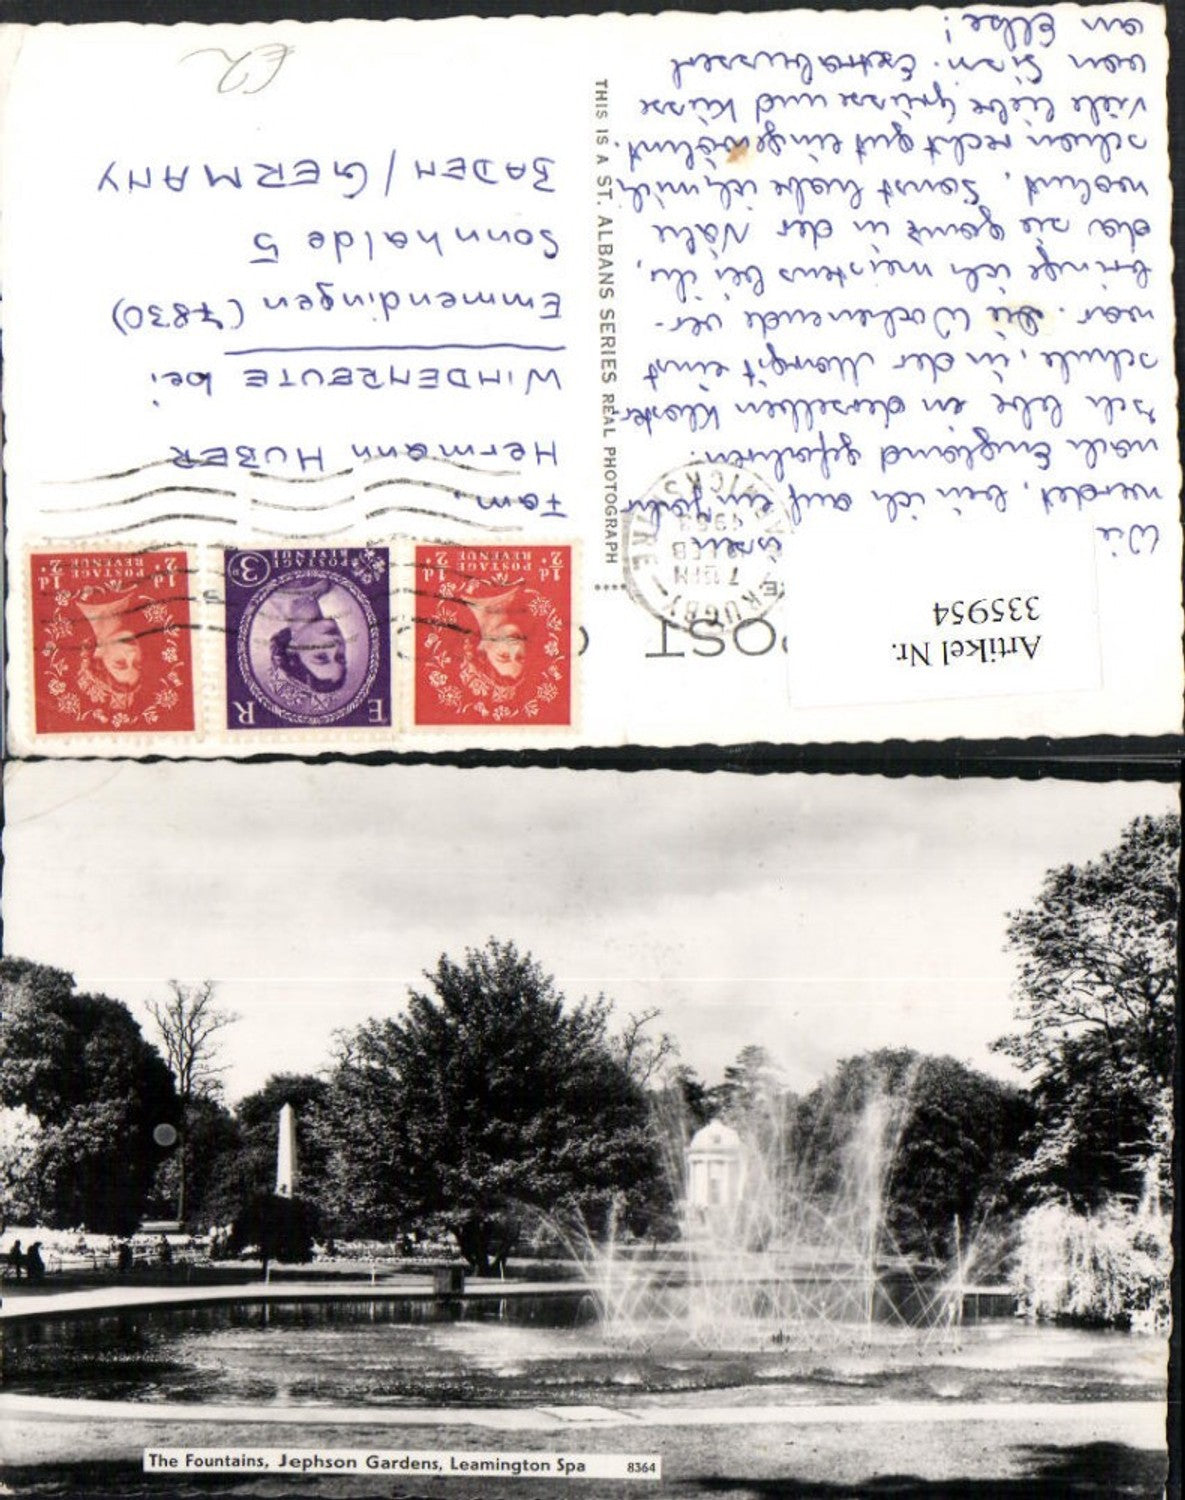 Artikel Nr.
335954
POST
RUGBY
7 PM
FEB
WARWICKSHIRE
THIS IS A ST. ALBANS SERIES REAL PHOTOGRAPH
POSTAGE
REVENUE
½D. ½D.
E R
3D
POSTAGE
REVENUE
POSTAGE
REVENUE
½D. ½D.
Wie
werdet, bin ich auf ein Jahr
nach England gefahren.
Ich lebe in derselben Kloster-
schule, in der Margit einst
war. Die Wochenende ver-
bringe ich meistens bei ihr,
da sie ganz in der Nähe
wohnt. Sonst habe ich mich
schon recht gut eingewöhnt.
Viele liebe Grüsse und Küsse
von
an Elke!
Fam.
Hermann HUBER
WINDENREUTE bei
Emmendingen (7830)
Sonnhalde 5
BADEN / GERMANY
The Fountains, Jephson Gardens, Leamington Spa 8364